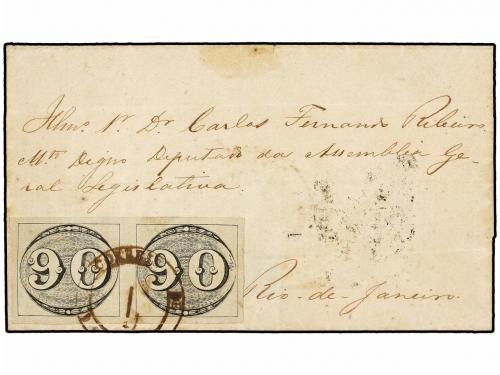 Illmo. Sr. Dr. Carlos Fernando Ribeiro
Mto. Digno Deputado da Assemblia Ge-
ral Legislativa.
90 90
Rio-de-Janeiro.